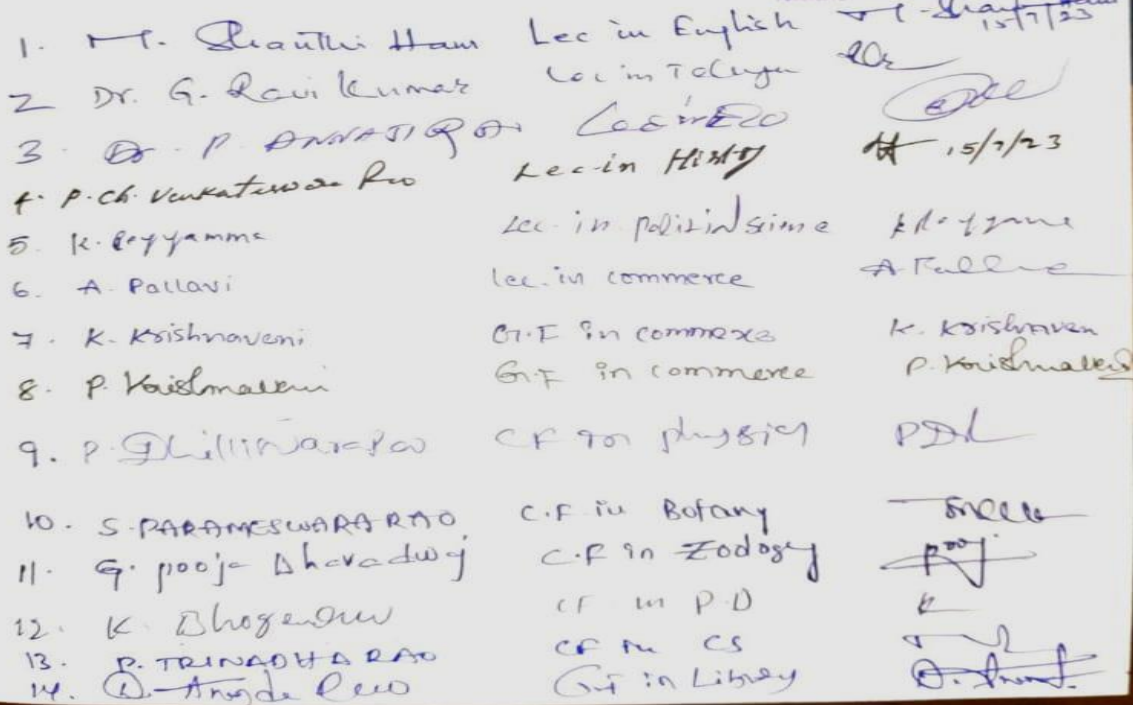 1. M. Shanthi Ham Lec in English M. Shanthi 15/7/23
2 Dr. G. Ravi Kumar Lec in Telugu
3. Dr. P. ANNAJI RAO Lec in ECO
4. P. Ch. Venkateswara Rao Lec-in History 15/7/23
5. K. Poyyamma Lec. in
6. A. Pallavi lec. in commerce A. Pallavi
7. K. Krishnaveni G.F in commerce K. Krishnaven
8. P. Krishnaveni G.F in commerce P. Krishnaveni
9. P. CF in physics PDL
10. S. PARAMESWARA RAO C.F in Botany
11. G. pooja Dharadwaj C.F in Zoology pooj
12. K. CF in P.D K
13. P. TRINADHA RAO CF in CS
14. D. Ananda Rao G.F in Library